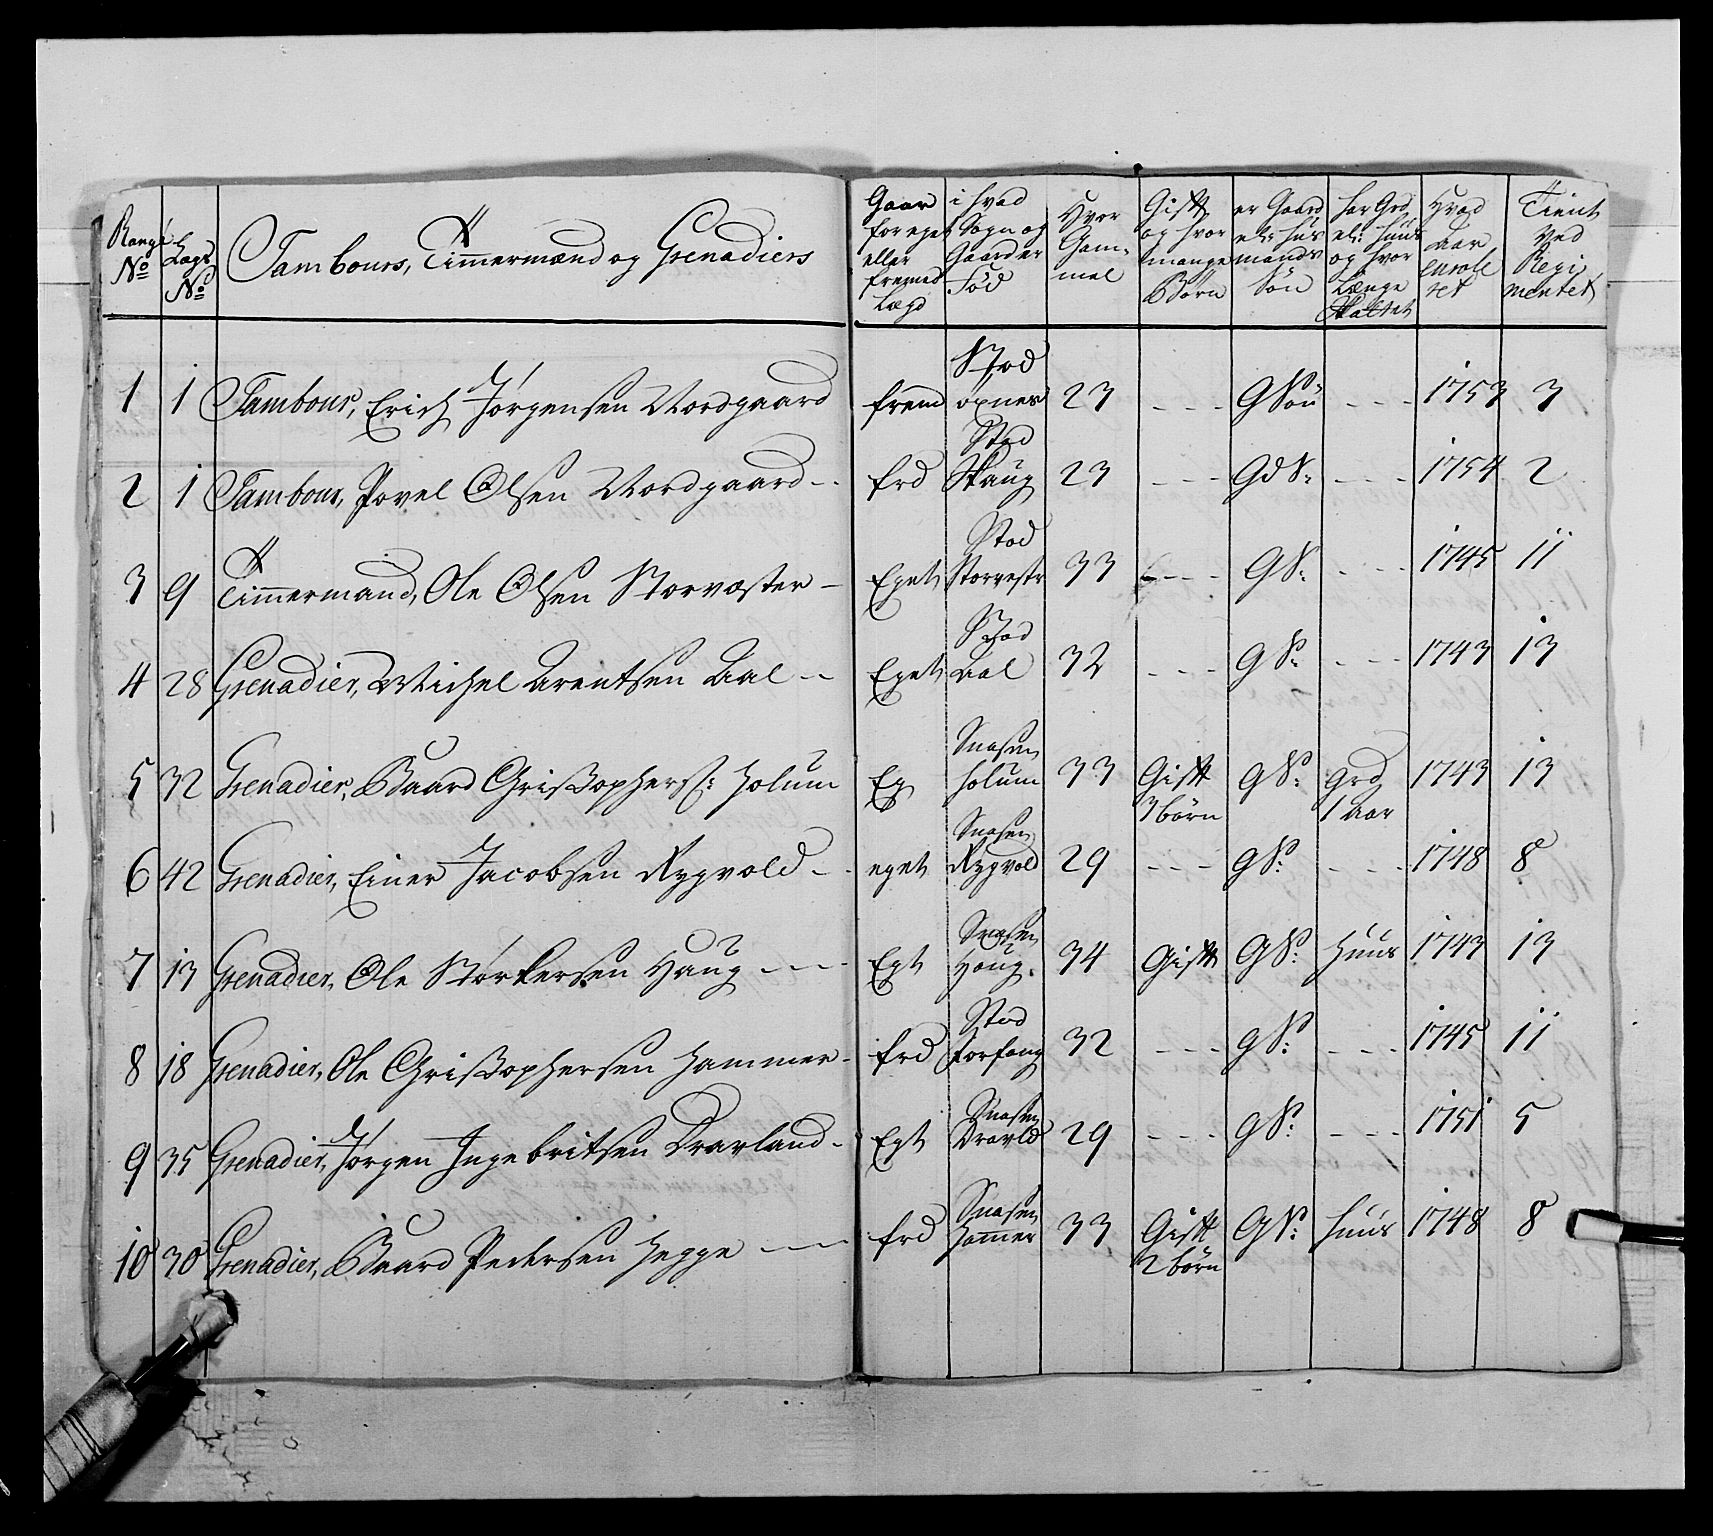 Range No | Lags No | Tambours, Timmermænd og Grenadiers | Gaar for eget eller fremed Lægd | i hvad Sogn og Gaard er Fød | Hvor Gam- mel | Gift og hvor mange Børn | er Gaard el: huus mands Søn | har Grd el: huus og hvor Længe | Hvad Aar enrole ret | Tient ved Regi mentet
1 | 1 | Tambour, Erich Jørgensen Nordgaard | frem | Stod öxnes | 23 | --- | G Søn | --- | 1753 | 3
2 | 1 | Tambour, Povel Olsen Nordgaard -- | frd | Stod Skaug | 23 | --- | Gd S: | --- | 1754 | 2
3 | 9 | Timmermand, Ole Olsen Storvæster - | Eget | Stod Storvestr | 33 | --- | G S: | --- | 1745 | 11
4 | 28 | Grenadier, Michel Arentsen Aal -- | Eget | Stod Aal | 32 | --- | G S: | --- | 1743 | 13
5 | 32 | Grenadier, Baard Christophers: holum | Eg | Snasen holum | 33 | Gift 3 börn | G S: | grd 1 Aar | 1743 | 13
6 | 42 | Grenadier, Einer Jacobsen Rygvold -- | eget | Snasen Rygvold | 29 | --- | g S: | --- | 1748 | 8
7 | 13 | Grenadier, Ole Størkersen Haug --- | Egt | Snasen Houg. | 34 | Gift | G S: | Huus | 1743 | 13
8 | 18 | Grenadier, Ole Christophersen hammer - | frd | Stod | 32 | --- | g S: | --- | 1745 | 11
9 | 35 | Grenadier, Jørgen Ingebritsen Dravland - | Egt | Snasen Dravld | 29 | --- | g S: | --- | 1751 | 5
10 | 30 | Grenadier, Baard Pedersen hegge --- | frd | Snasen hammer | 33 | Gift 2 börn | G S: | huus | 1748 | 8